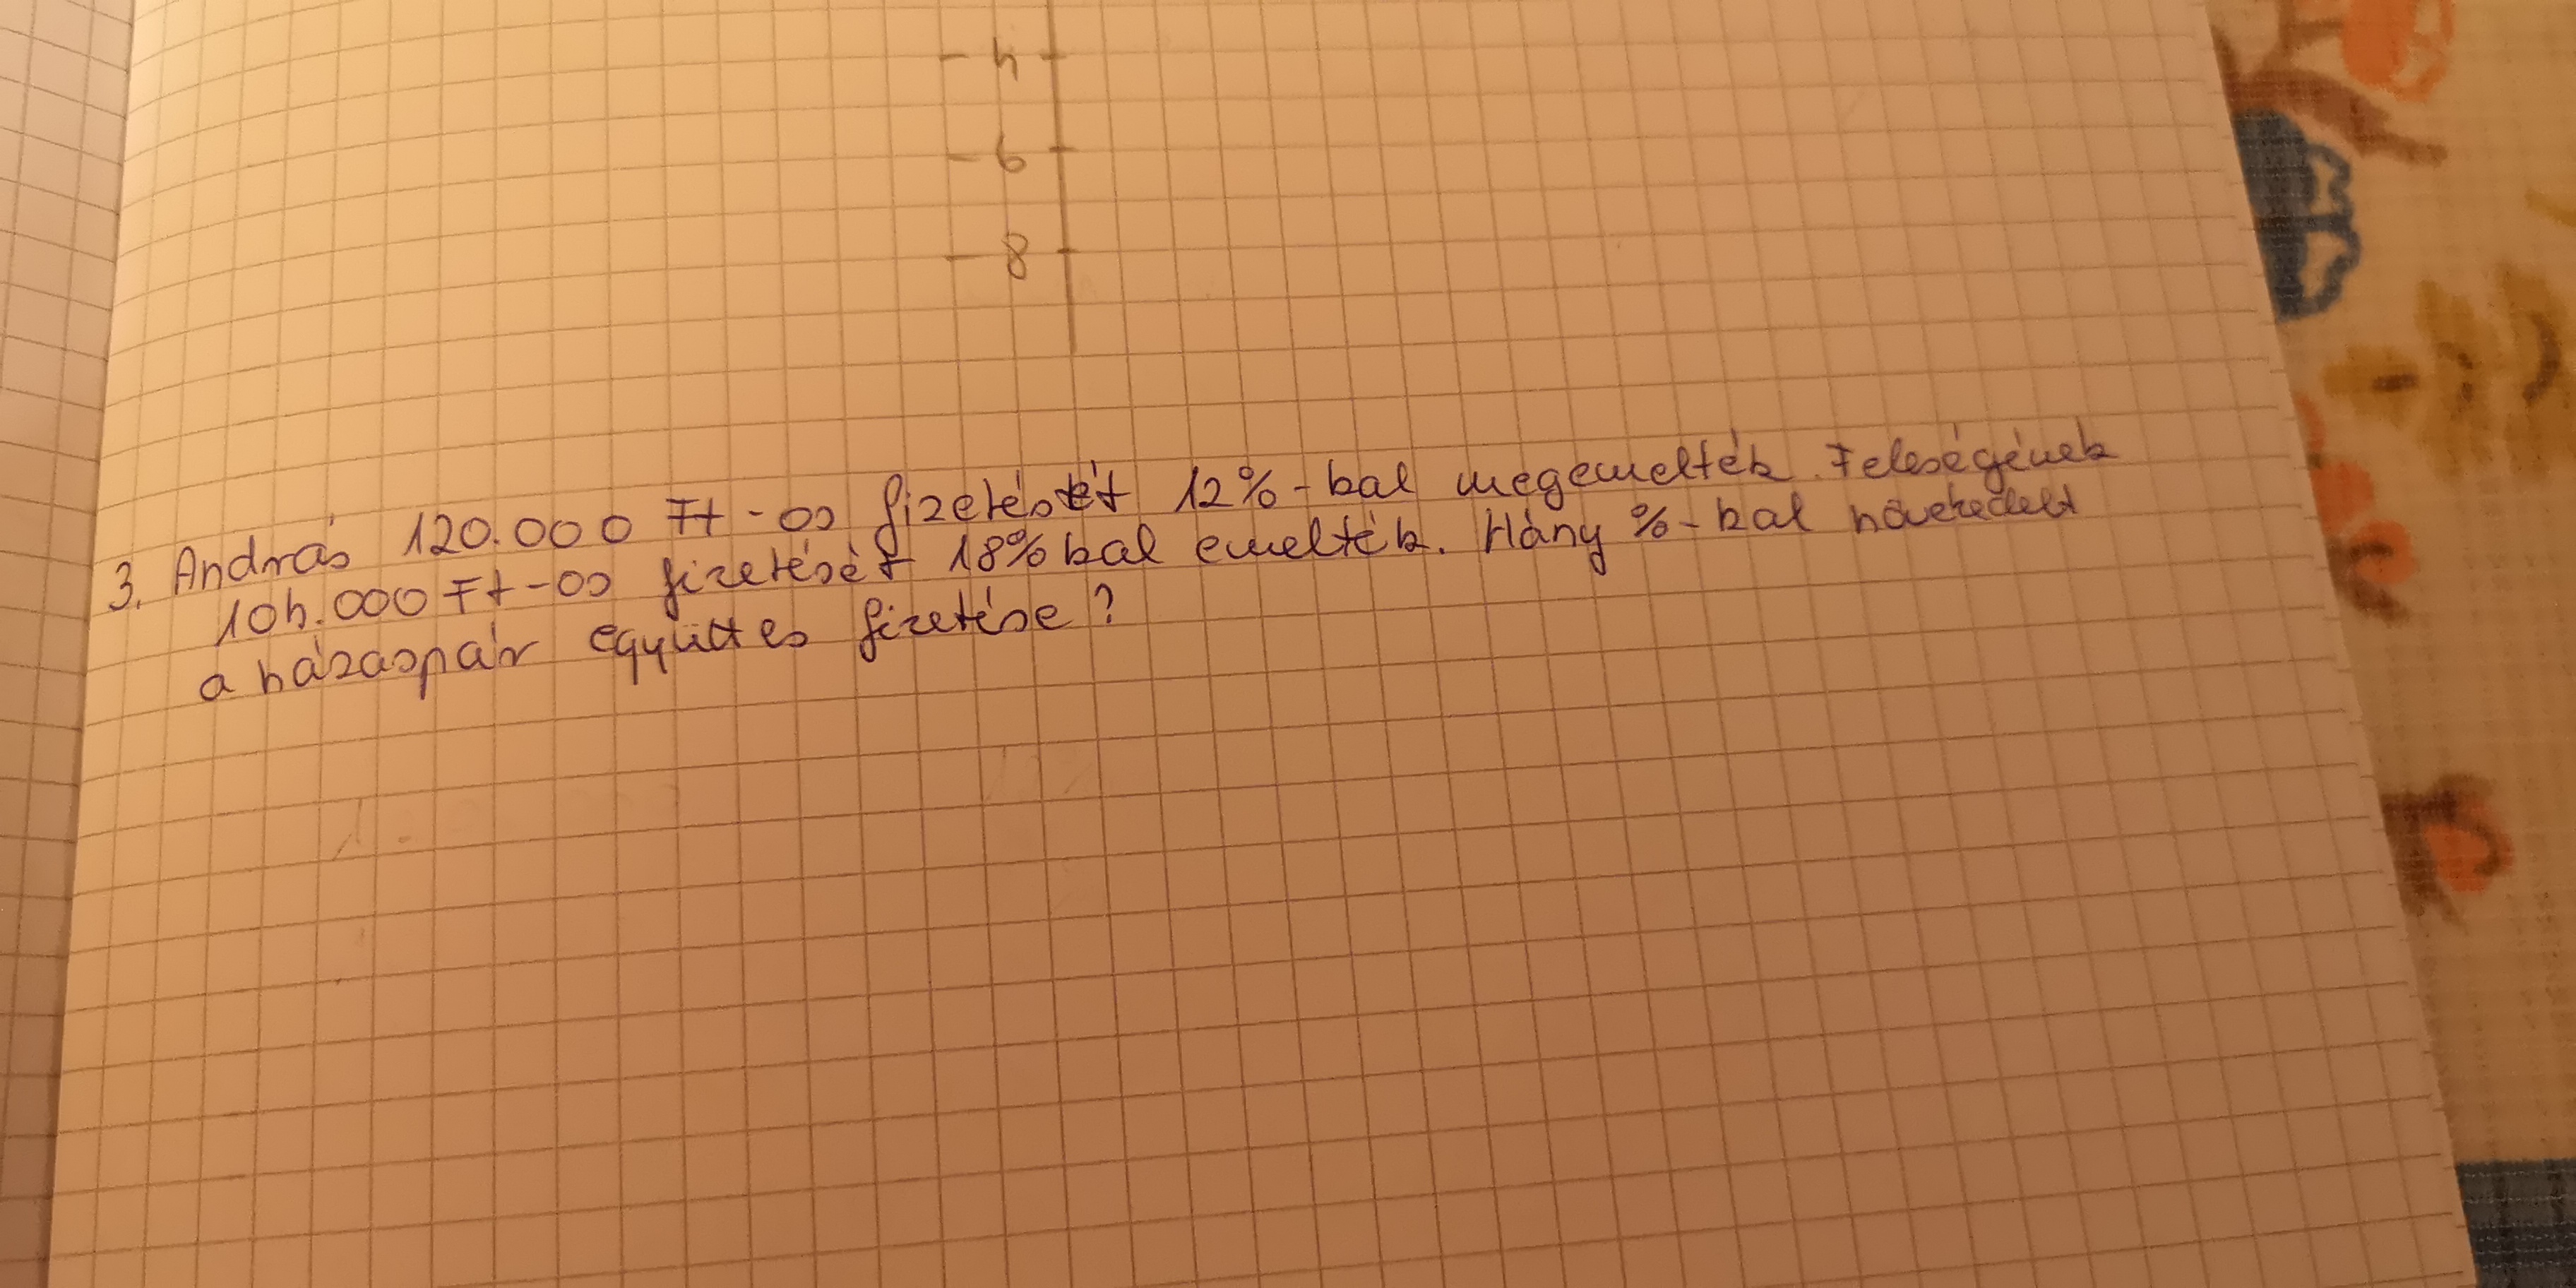 - 4
- 6
- 8
3. András 120.000 Ft-os fizetését 12%-kal megemelték. Feleségének
104.000 Ft-os fizetését 18%kal emelték. Hány %-kal növekedett
a házaspár együttes fizetése?